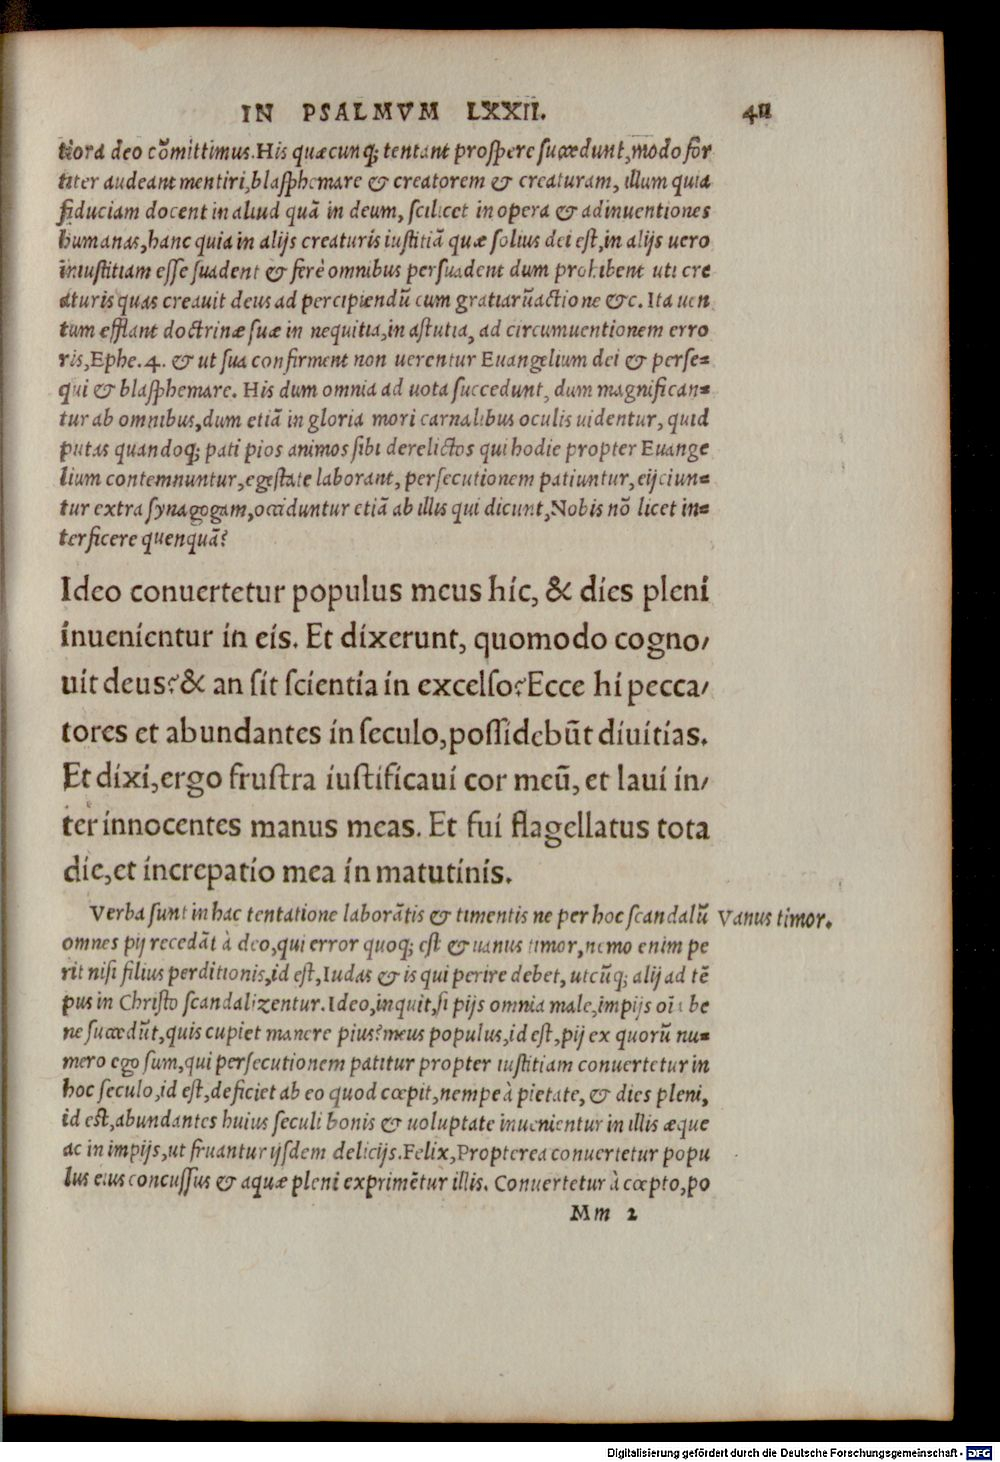 IN PSALMVM LXXII. 411
tiora deo cõmittimus. His quæcunq; tentant prospere succedunt, modo for
titer audeant mentiri, blasphemare & creatorem & creaturam, illum quia
fiduciam docent in aliud quã in deum, scilicet in opera & adinuentiones
humanas, hanc quia in alijs creaturis iustitiã quæ solius dei est, in alijs uero
iniustitiam esse suadent & ferè omnibus persuadent dum prohibent uti cre
aturis quas creauit deus ad percipiendũ cum gratiarũactione &c. Ita uen
tum efflant doctrinæ suæ in nequitia, in astutia, ad circumuentionem erro
ris, Ephe. 4. & ut sua confirment non uerentur Euangelium dei & perse=
qui & blasphemare. His dum omnia ad uota succedunt, dum magnifican=
tur ab omnibus, dum etiã in gloria mori carnalibus oculis uidentur, quid
putas quandoq; pati pios animos sibi derelictos qui hodie propter Euange
lium contemnuntur, egestate laborant, persecutionem patiuntur, eijciun=
tur extra synagogam, occiduntur etiã ab illis qui dicunt, Nobis nõ licet in=
terficere quenquã?
Ideo conuertetur populus meus hic, & dies pleni
inuenientur in eis. Et dixerunt, quomodo cogno/
uit deus? & an sit scientia in excelso? Ecce hi pecca/
tores et abundantes in seculo, possidebũt diuitias.
Et dixi, ergo frustra iustificaui cor meũ, et laui in/
ter innocentes manus meas. Et fui flagellatus tota
die, et increpatio mea in matutinis.
Verba sunt in hac tentatione laborãtis & timentis ne per hoc scandalũ Vanus timor.
omnes pij recedãt à deo, qui error quoq; est & uanus timor, nemo enim pe
rit nisi filius perditionis, id est, Iudas & is qui perire debet, utcũq; alij ad tẽ
pus in Christo scandalizentur. Ideo, inquit, si pijs omnia male, impijs oĩa be
ne succedũt, quis cupiet manere pius? meus populus, id est, pij ex quorũ nu=
mero ego sum, qui persecutionem patitur propter iustitiam conuertetur in
hoc seculo, id est, deficiet ab eo quod cœpit, nempe à pietate, & dies pleni,
id est, abundantes huius seculi bonis & uoluptate inuenientur in illis æque
ac in impijs, ut fruantur ijsdem delicijs. Felix, Propterea conuertetur popu
lus eius concussus & aquæ pleni exprimẽtur illis. Conuertetur à cœpto, po
Mm 2
Digitalisierung gefördert durch die Deutsche Forschungsgemeinschaft - DFG